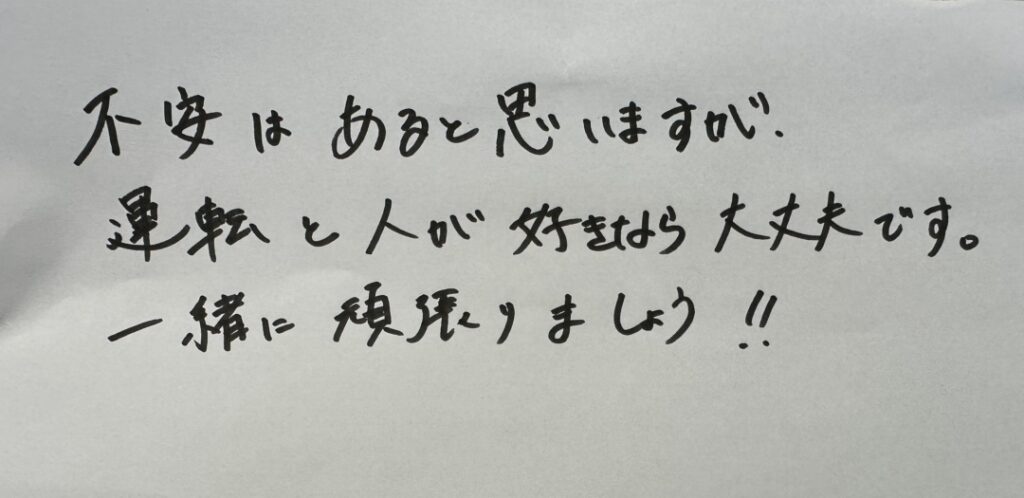 不安はあると思いますが、
運転と人が好きなら大丈夫です。
一緒に頑張りましょう!!